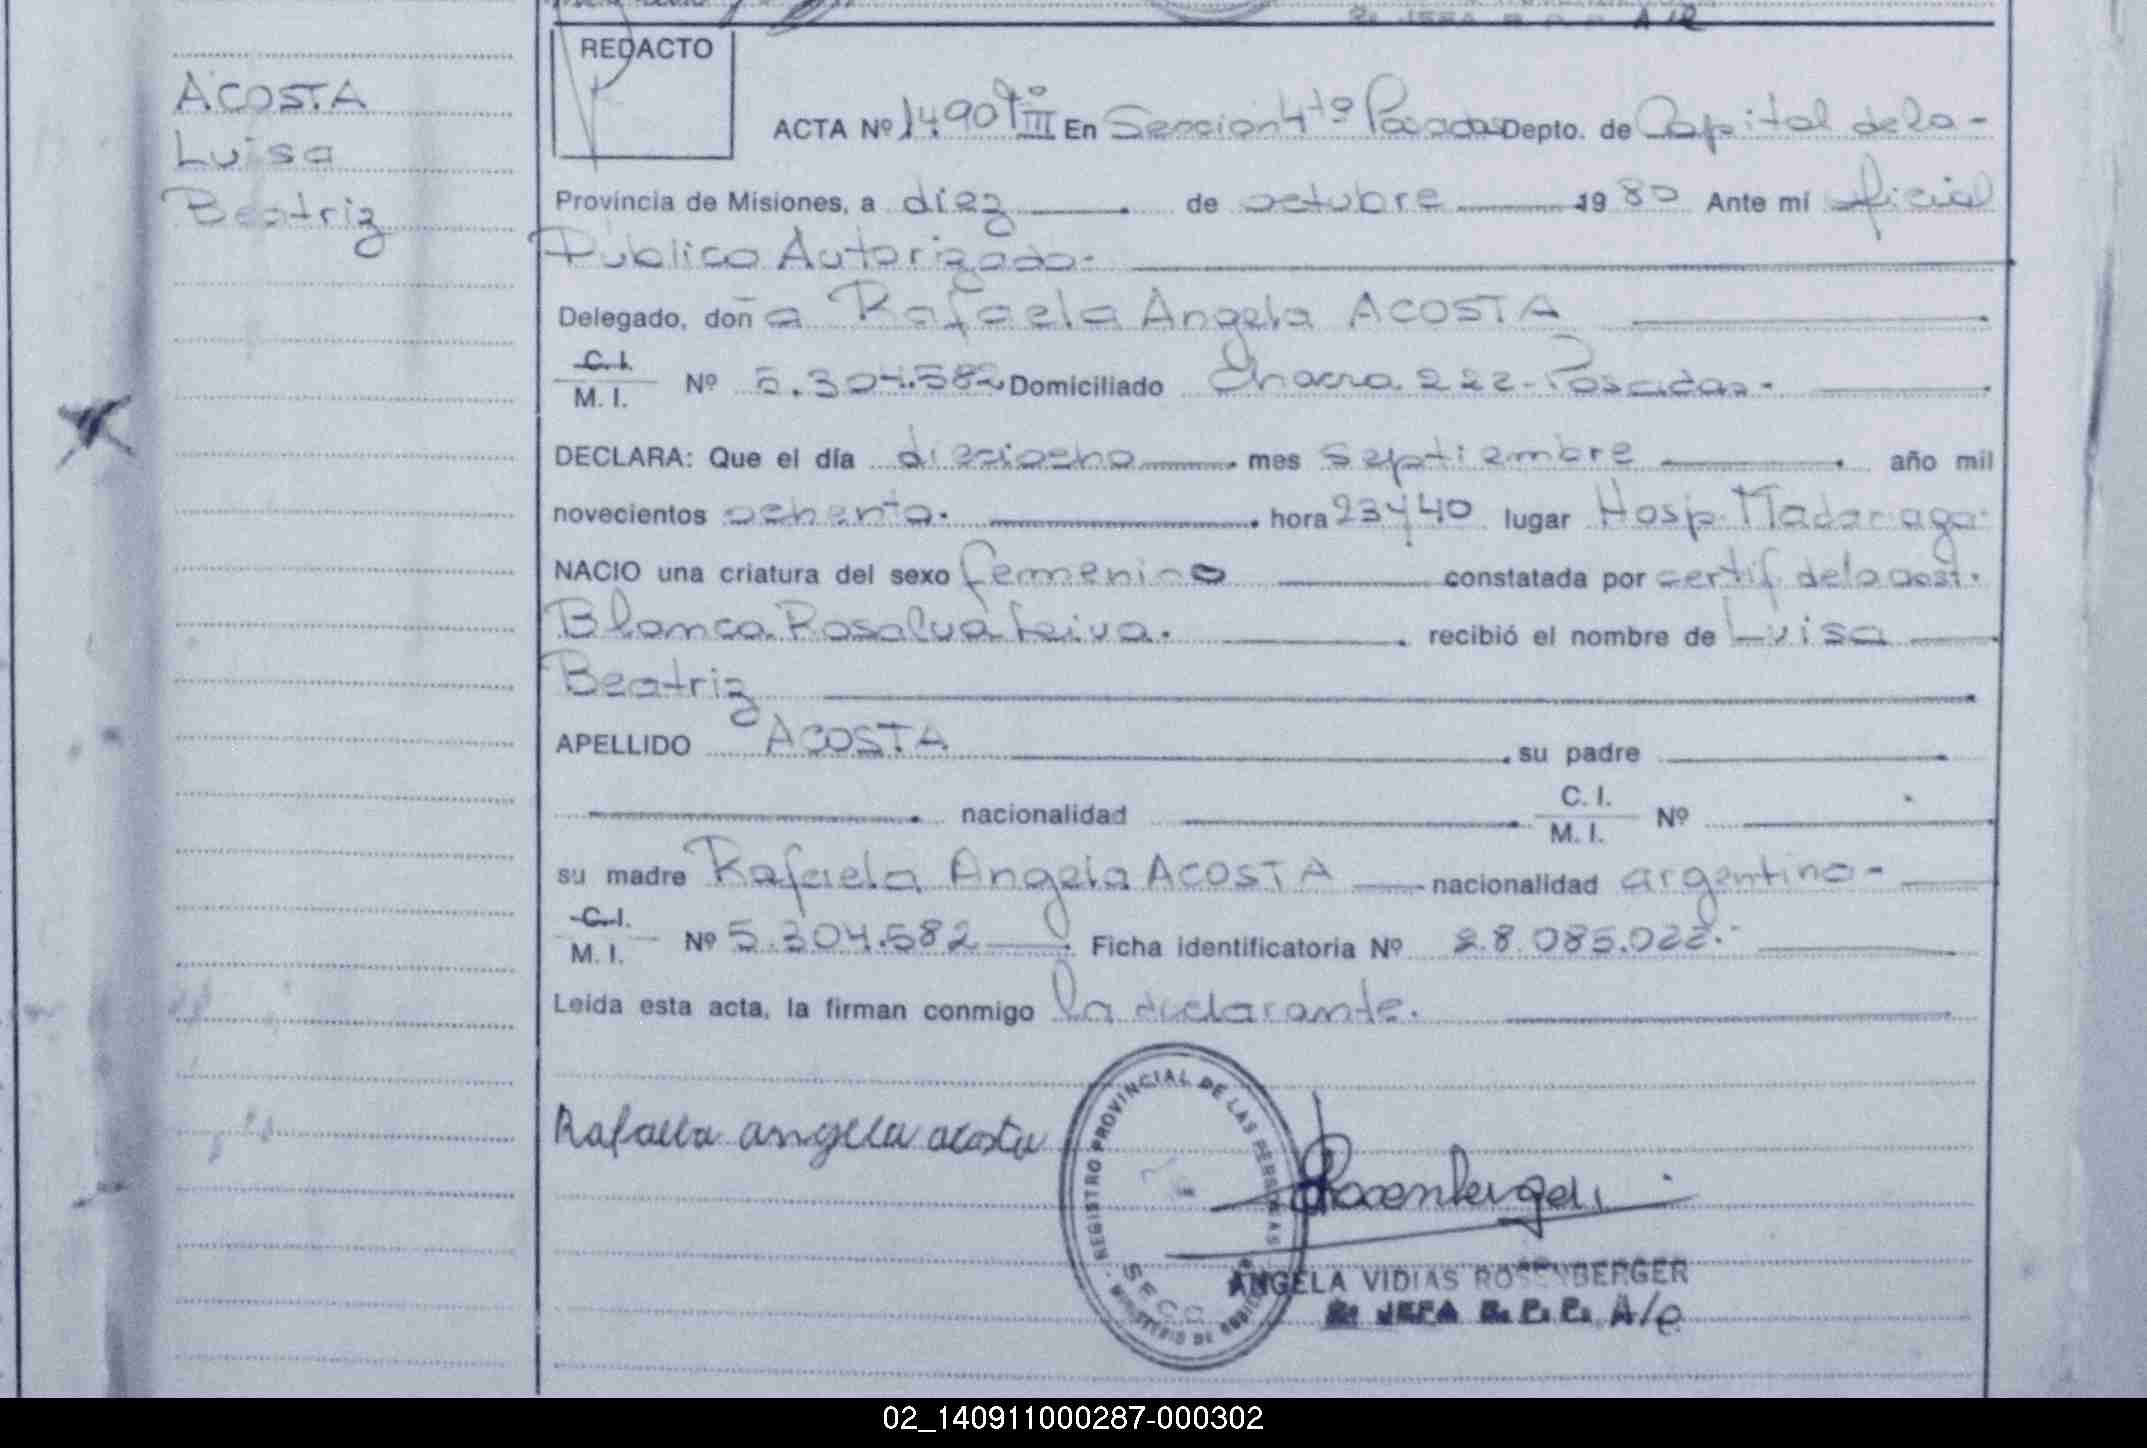 ACOSTA
Luisa
Beatriz
REDACTO
ACTA Nº 1490 Tº III En Seccion 4tº Posadas Depto. de Capital de la -
Provincia de Misiones, a diez de octubre 1980 Ante mí oficial
Público Autorizado.
Delegado, doña Rafaela Angela ACOSTA
C. I.
M. I. Nº 5.304.582 Domiciliado Chacra 222 - Posadas -
DECLARA: Que el día dieciocho mes septiembre año mil
novecientos ochenta. hora 23 y 40 lugar Hosp. Madariaga
NACIO una criatura del sexo femenino constatada por certif. de la obst.
Blanca Rosalva Leiva. recibió el nombre de Luisa
Beatriz
APELLIDO ACOSTA su padre
nacionalidad C. I.
M. I. Nº
su madre Rafaela Angela ACOSTA nacionalidad argentina -
C. I.
M. I. Nº 5.304.582 Ficha identificatoria Nº 28.085.022.-
Leída esta acta, la firman conmigo la declarante.
Rafaela angela acosta
REGISTRO PROVINCIAL DE LAS PERSONAS
SECC
MINISTERIO DE
Rosenberger
ANGELA VIDIAS ROSENBERGER
JEFA R. P. P. A/c
02_140911000287-000302